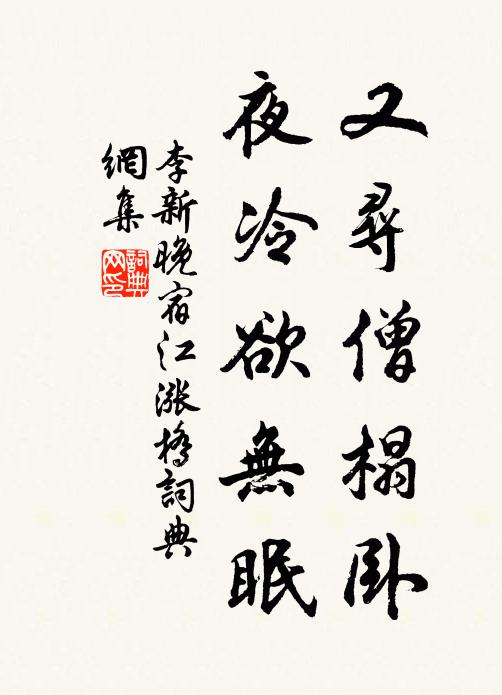 又尋僧榻卧
夜冷欲無眠
李新晚宿江漲橋詞典
網集
詞典
网印